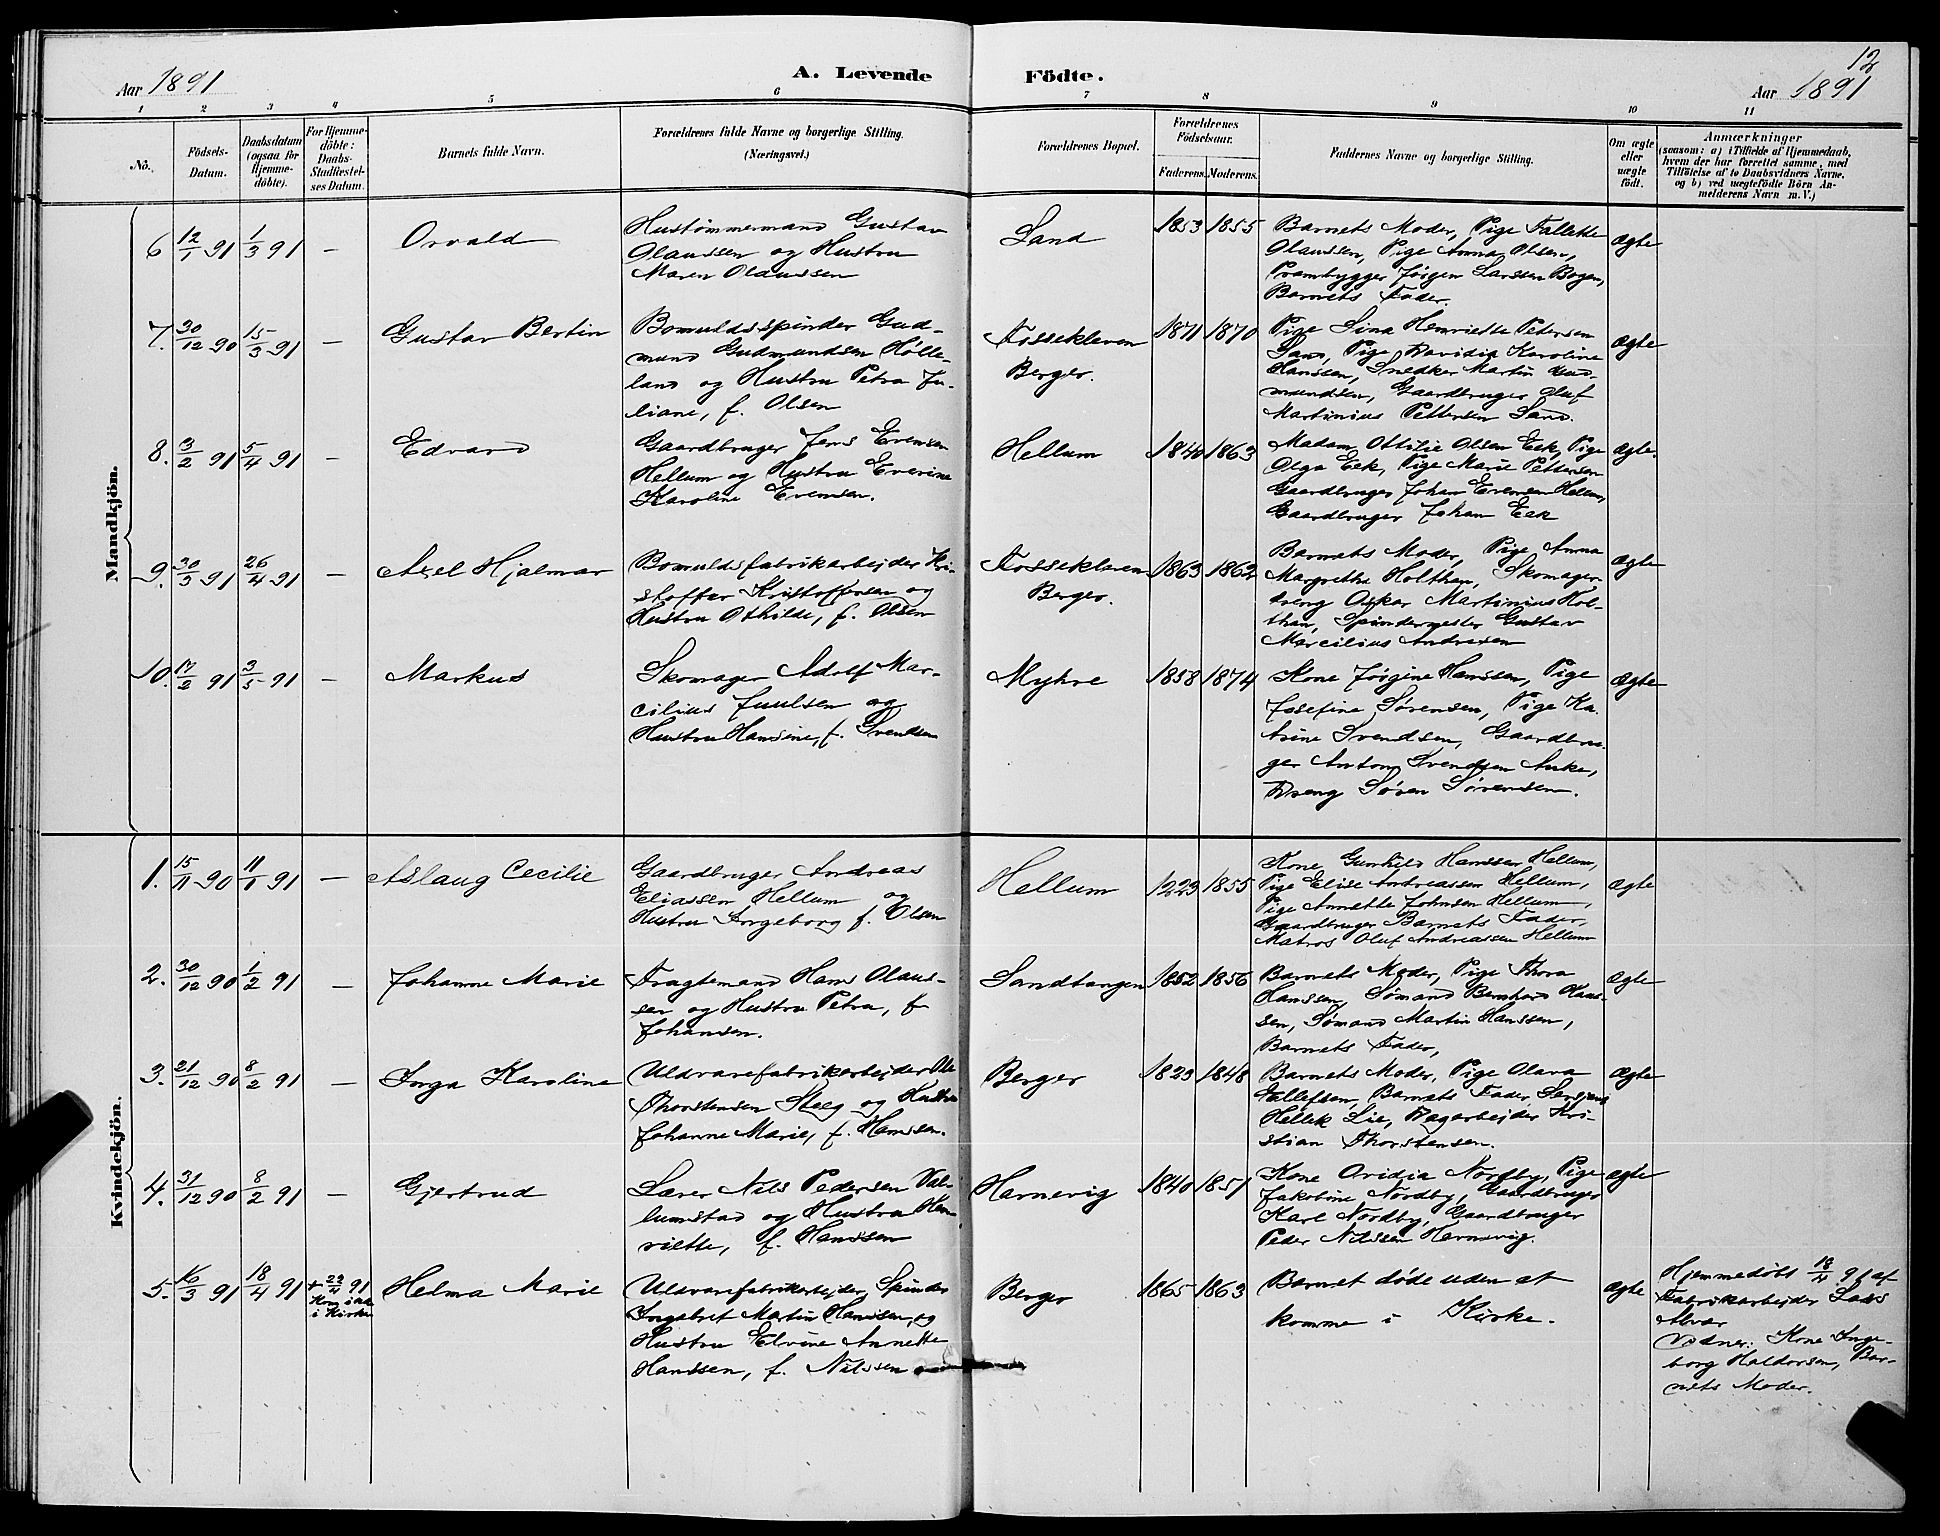 12
Aar 1891
A. Levende Födte.
Aar 1891
1 2 3 4 5 6 7 8 9 10 11
No.
Födsels-Datum.
Daabsdatum (ogsaa for Hjemme-döbte).
For Hjemme-döbte: Daabs-Stadfæstel-ses Datum.
Barnets fulde Navn.
Forældrenes fulde Navne og borgerlige Stilling.
(Næringsvei.)
Forældrenes Bopæl.
Forældrenes Födselsaar.
Faderens. Moderens.
Faddernes Navne og borgerlige Stilling.
Om ægte eller uægte født.
Anmærkninger
(saasom: a) i Tilfælde af Hjemmedaab,
hvem der har forrettet samme, med
Tilföielse af to Daabsvidners Navne,
og b) ved uægtefödte Börn An-
melderens Navn m.V.)
Mandkjön.
6 12/1 91 1/3 91 – Osvald
Hustømmermand Gustav
Olaussen og Hustru
Maren Olaussen
Sand 1853 1855
Barnets Moder, Pige Fallette
Olaussen, Pige Anna Olsen,
Prambygger Jørgen Larssen Bogen,
Barnets Fader.
Ægte
7. 30/12 90 15/3 91 – Gustav Bertin
Bomuldsspinder Gud-
mund Gudmundsen Hølle-
land og Hustru Petra Ju-
liane, f. Olsen
Fossekleven
Berger.
1871 1870
Pige Lina Henriette Petersen
Sand, Pige Davidia Karoline
Hanssen, Snedker Martin Gud-
mundsen, Gaardbruger Oluf
Martinius Pettersen Sand.
Ægte
8. 3/2 91 5/4 91 – Edvard
Gaardbruger Jens Evensen
Hellum og Hustru Everine
Karoline Evensen.
Hellum 1840 1863
Madam Ottilie Olsen Eek, Pige
Olga Eek, Pige Marie Pettersen
Gaardbruger Johan Evensen Hellum,
Gaardbruger Johan Eek
Ægte.
9. 30/3 91 26/4 91 – Axel Hjalmar
Bomuldsfabrikarbejder Kri-
stoffer Kristoffersen og
Hustru Othilde, f. Olsen
Fossekleven
Berger.
1863 1862
Barnets Moder, Pige Anna
Margrethe Holthan, Skomager-
dreng Oskar Martinius Hol-
than, Spindemester Gustav
Marcilius Andresen
Ægte
10. 17/2 91 3/5 91 – Markus
Skomager Adolf Mar-
cilius Juulsen og
Hustru Hansine, f. Svendsen
Myhre 1858 1874
Kone Jørgine Hanssen, Pige
Josefine Sørensen, Pige Ka-
trine Svendsen, Gaardbru-
ger Anton Svendsen Anke,
Dreng Søren Sørensen.
Ægte
Kvindekjön.
1. 15/11 90 11/1 91 – Aslaug Cecilie
Gaardbruger Andreas
Eliassen Hellum og
Hustru Ingeborg f. Olsen
Hellum 1223 1855
Kone Gunhild Hanssen Hellum,
Pige Elise Andreassen Hellum,
Pige Annette Johnsen Hellum,
Gaardbruger Barnets Fader,
Matros Oluf Andreassen Hellum
Ægte
2. 30/12 90 1/2 91 – Johanne Marie
Fragtemand Hans Olaus-
sen og Hustru Petra, f.
Johansen.
Sandtangen 1852 1856
Barnets Moder, Pige Thora
Hanssen, Sømand Bernhard Hans-
sen, Sømand Martin Hanssen,
Barnets Fader,
Ægte
3. 21/12 90 8/2 91 – Inga Karoline
Uldvarefabrikarbejder Ole
Thorstensen Steeg og Hustru
Johanne Marie, f. Hanssen.
Berger 1823 1848
Barnets Moder, Pige Olava
Tallefsen, Barnets Fader,
Hellek Lie, Dagarbejder Kri-
stian Thorstensen.
Ægte
4. 31/12 90 8/2 91 – Gjertrud
Lærer Nils Pedersen Val-
lumstad og Hustru Hen-
riette, f. Hanssen
Havnevig 1840 1851
Kone Ovidia Nordby, Pige
Jakobine Nordby, Gaardbruger
Karl Nordby, Gaardbruger
Peder Nilssen Hernsvig.
Ægte
5. 16/3 91 18/4 91 + 22/4 91
Kom ikke
i Kirke
Helma Marie
Uldvarefabrikarbejder, Spinder
Ingebret Martin Hanssen, og
Hustru Elvine Annette
Hanssen, f. Nilssen
Berger 1865 1863
Barnet døde uden at
komme i Kirke.
Ægte
Hjemmedøbt 18/4 91 af
Fabrikarbejder Lars
Alvær
Vidner: Kone Inge-
borg Haldorsen, Bar-
nets Moder.